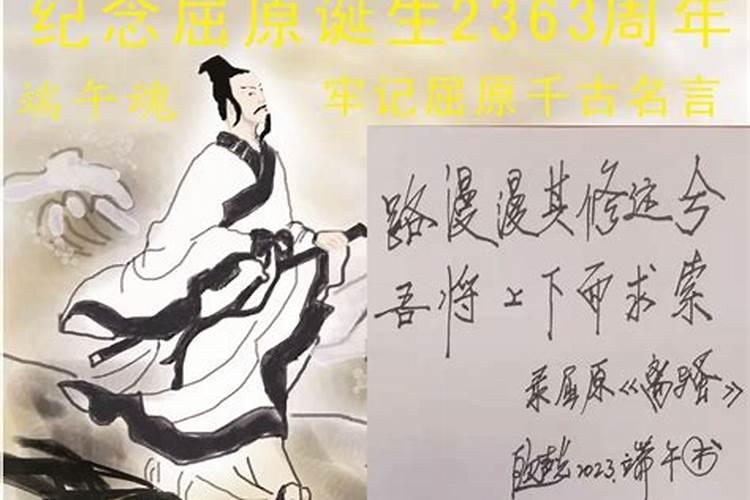 纪念屈原诞生2363周年
端午魂
牢记屈原千古名言
路漫漫其修远兮
吾将上下而求索
录屈原《离骚》
2023.端午书